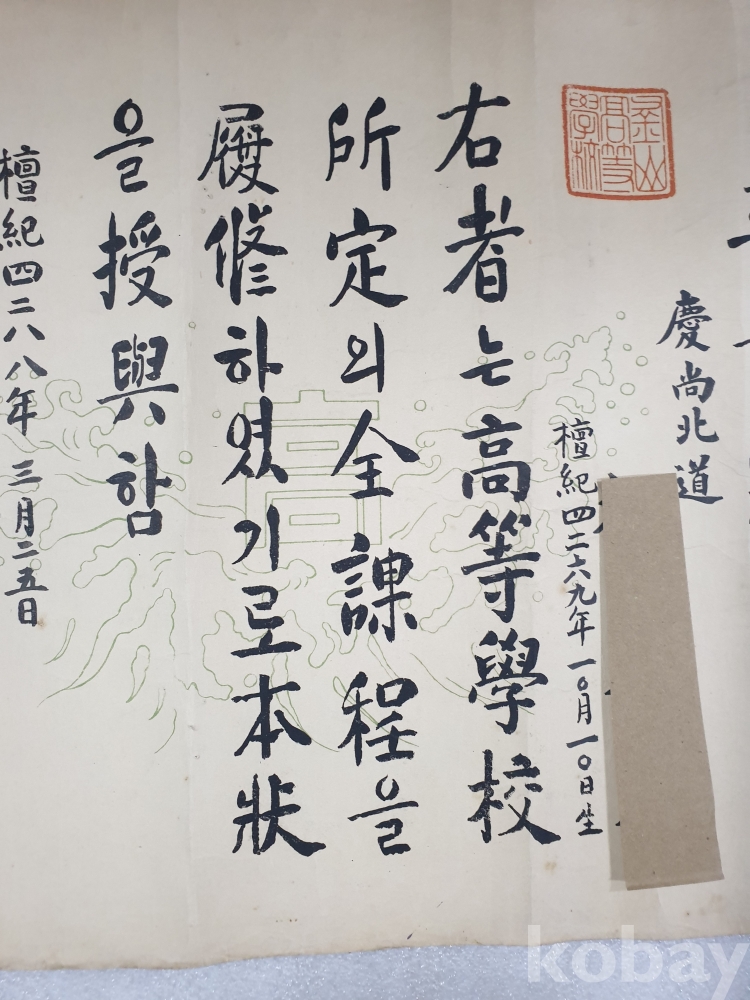 慶尙北道
檀紀四二六九年一〇月一〇日生
右者는高等學校
所定의全課程을
履修하였기로本狀
을授與함
檀紀四二八八年三月二五日
金山高等學校
kobay